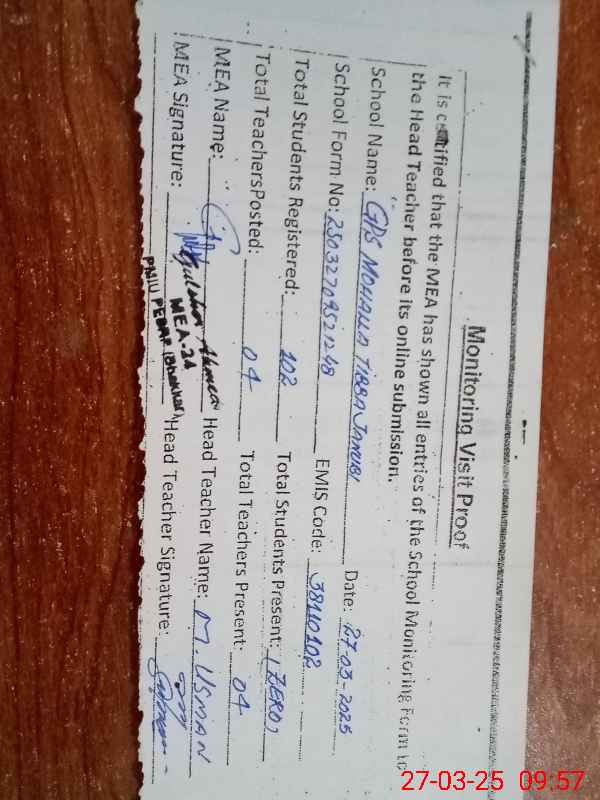 Monitoring Visit Proof
It is certified that the MEA has shown all entries of the School Monitoring Form to
the Head Teacher before its online submission.
School Name: GPS MOHALLA TIBBA JANUBI Date: 27-03-2025
School Form No: EMIS Code: 38110102
Total Students Registered: 102 Total Students Present: (ZERO)
Total TeachersPosted: 04 Total Teachers Present: 04
MEA Name: Ahmed Head Teacher Name: M. USMAN
MEA-24
MEA Signature: Head Teacher Signature:
PMIU PESRP (Bhakkar)
27-03-25 09:57